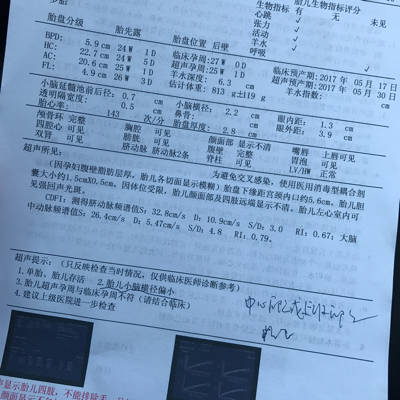 胎儿生物指标评分
生物指标 有 无 未见
心跳 √
张力 √
活动 √
羊水 √
呼吸
胎盘分级 胎先露 胎盘位置 后壁
BPD: 5.9 cm 24 W 1 D 临床孕周:27 W 0 D
HC: 22.7 cm 24 W 5 D 超声孕周:25 W 1 D 临床预产期:2017 年 05 月 17 日
AC: 20.6 cm 25 W 1 D 羊水深度: 6.3 cm 超声预产期:2017 年 05 月 30 日
FL: 4.9 cm 26 W 3 D 估计体重: 813 g±119 g 羊水指数: cm
小脑延髓池前后径: 0.7 cm 小脑横径: 2.2 cm 眼内距: 1.3 cm
透明隔宽度: 0.5 cm 鼻骨: cm 眼外距: 3.9 cm
胎心率: 143 次/分 胎盘厚度: 2.8 cm
颅骨环 完整 胸腔 可见 颜面部 显示不清 嘴唇 上唇可见
四腔心 可见 膀胱 可见 腹壁 完整 胃泡 可见
双肾 可见 脐动脉 脐动脉2条 脊柱 可见 LV/HW 正常
超声所见:
(因孕妇腹壁脂肪层厚,胎儿各切面显示模糊)为避免交叉感染,使用医用消毒型耦合剂
囊大小约1.5cmX0.5cm。因体位受限,胎儿颜面部及四肢远端显示不清。胎儿左心室内可
见强回声光斑。
CDFI: 测得脐动脉频谱值S: 32.8cm/s D: 10.9cm/s S/D: 3.0 RI: 0.67; 大脑
中动脉频谱值S: 26.4cm/s D: 5.47cm/s S/D: 4.8 RI: 0.79。
超声提示:《只反映检查当时情况,仅供临床医师诊断参考》
1.单胎,胎儿存活 2.胎儿小脑横径偏小
3.胎儿超声孕周与临床孕周不符(请结合临床)
4.建议上级医院进一步检查
显示胎儿四肢,不能排除手